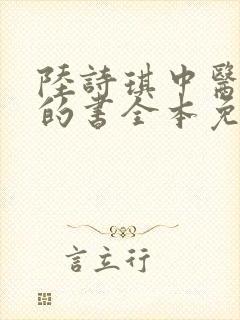 陸詩琪中醫
的書全本免
言立行